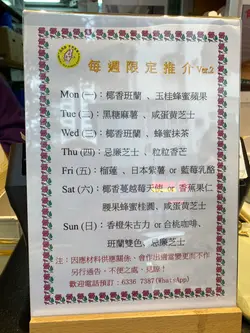 每週限定推介 Ver.2
Mon (一)：椰香班蘭 、玉桂蜂蜜蘋果
Tue (二)：黑糖麻薯 、咸蛋黃芝士
Wed (三)：椰香班蘭 、蜂蜜抹茶
Thu (四)：忌廉芝士 、粒粒香芒
Fri (五)：榴蓮 、日本紫薯 or 藍莓乳酪
Sat (六)：椰香蔓越莓天使 or 香蕉果仁
腰果蜂蜜桂圓、咸蛋黃芝士
Sun (日)：香橙朱古力 or 合桃咖啡、
班蘭雙色、忌廉芝士
注：因應材料供應關係，會作出適當變更而不作
另行通告，不便之處，見諒！
歡迎電話預訂：6336 7387(WhatsApp)